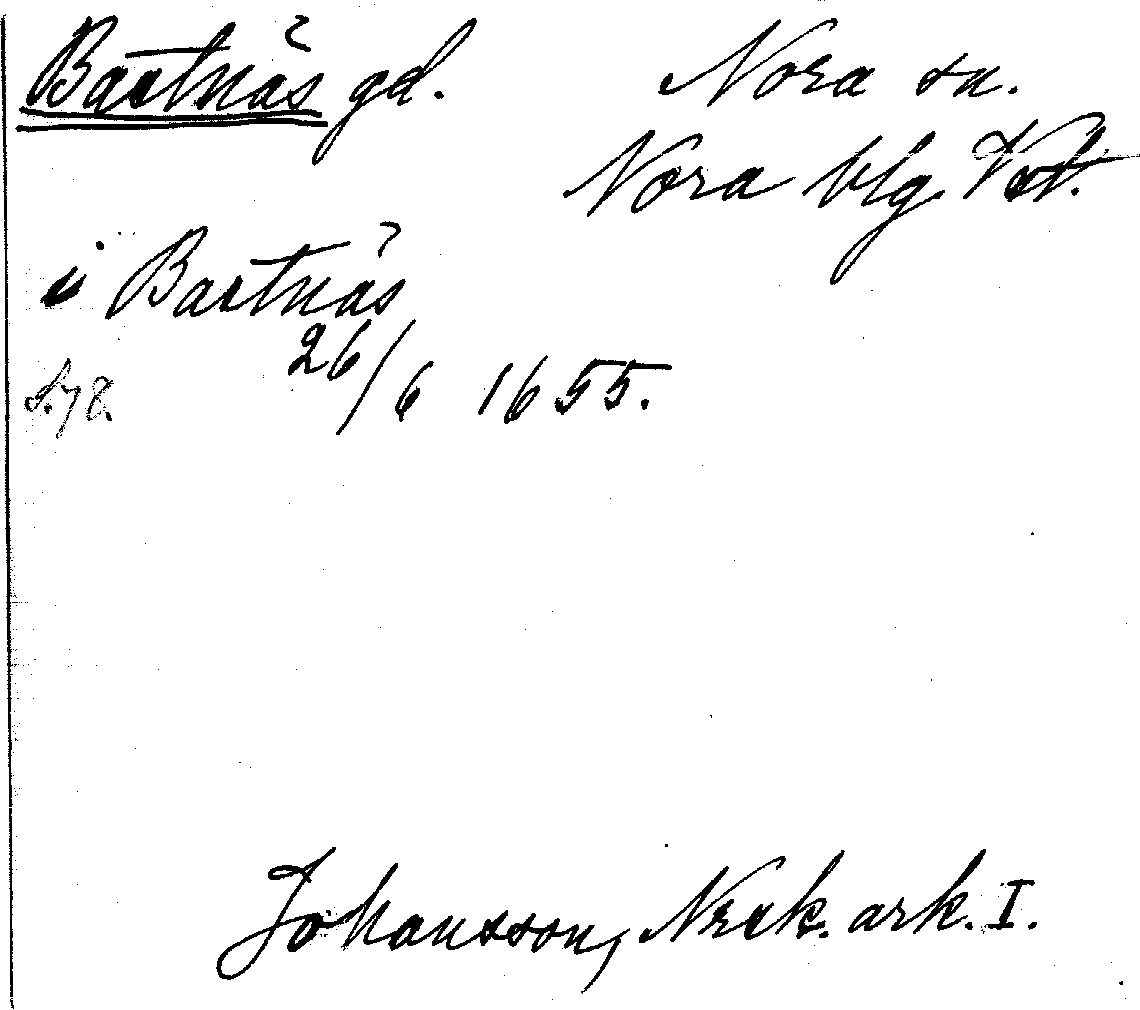 Bartnäs gd. Nora sn.
Nora blg. Vstl.
i Bartnäs
26/6 1655.
s. 78.
Johansson, Nrck. ark. I.